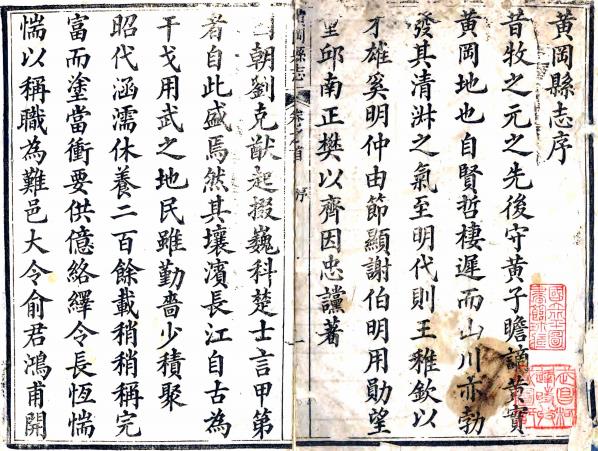 黃岡縣志序
昔牧之元之先後守黃子瞻謫黃實
黃岡地也自賢哲棲遲而山川亦勃
發其清淑之氣至明代則王稚欽以
才雄奚明仲由節顯謝伯明用勛望
里邱南正樊以齊因忠讜著
黃岡縣志
卷之首
序
一
國朝劉克猷起掇巍科楚士言甲第
者自此盛焉然其壤濱長江自古為
干戈用武之地民雖勤嗇少積聚
昭代涵濡休養二百餘載稍稍稱完
富而塗當衝要供億絡繹令長恆惴
惴以稱職為難邑大令俞君鴻甫開